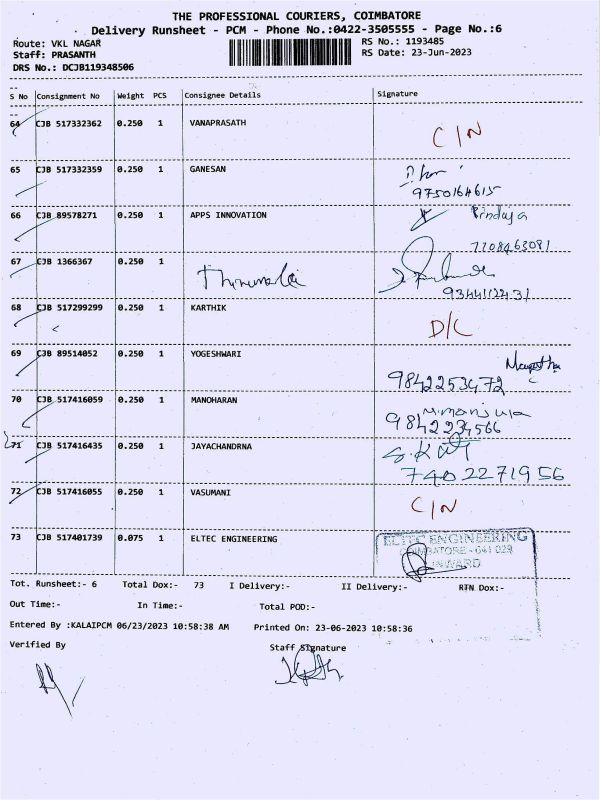 THE PROFESSIONAL COURIERS, COIMBATORE
Delivery Runsheet - PCM - Phone No.:0422-3505555 - Page No.:6
Route: VKL NAGAR RS No.: 1193485
Staff: PRASANTH RS Date: 23-Jun-2023
DRS No.: DCJB119348506
S No Consignment No Weight PCS Consignee Details Signature
64 CJB 517332362 0.250 1 VANAPRASATH C/N
65 CJB 517332359 0.250 1 GANESAN
9750164615
66 CJB 89578271 0.250 1 APPS INNOVATION Bindaya
7708463091
67 CJB 1366367 0.250 1 Thirumalai
9344112431
68 CJB 517299299 0.250 1 KARTHIK D/C
69 CJB 89514052 0.250 1 YOGESHWARI
9842253472
70 CJB 517416059 0.250 1 MANOHARAN M.manjula
9842234566
71 CJB 517416435 0.250 1 JAYACHANDRNA
7402271956
72 CJB 517416055 0.250 1 VASUMANI C/N
73 CJB 517401739 0.075 1 ELTEC ENGINEERING ELTEC ENGINEERING
COIMBATORE - 641 029
INWARD
Tot. Runsheet:- 6 Total Dox:- 73 I Delivery:- II Delivery:- RTN Dox:-
Out Time:- In Time:- Total POD:-
Entered By :KALAIPCM 06/23/2023 10:58:38 AM Printed On: 23-06-2023 10:58:36
Verified By Staff Signature